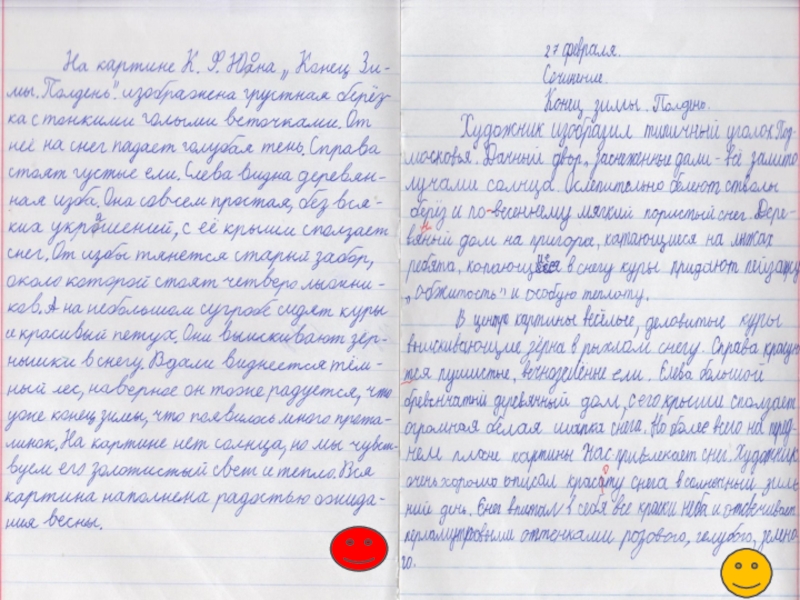 На картине К. Ф. Юона „Конец Зи-
мы. Полдень" изображена грустная берёз-
ка с тонкими голыми веточками. От
неё на снег падает голубая тень. Справа
стоят густые ели. Слева видна деревян-
ная изба. Она совсем простая, без вся-
ких украшений, с её крыши сползает
снег. От избы тянется старый забор,
около которой стоят четверо лыжни-
ков. А на небольшом сугробе сидят куры
и красивый петух. Они выискивают зёр-
нышки в снегу. Вдали виднеется тём-
ный лес, наверное он тоже радуется, что
уже конец зимы, что появилось много прота-
линок. На картине нет солнца, но мы чувст-
вуем его золотистый свет и тепло. Вся
картина наполнена радостью ожида-
ния весны.
27 февраля.
Сочинение.
Конец зимы. Полдень.
Художник изобразил типичный уголок Под-
московья. Дачный двор, заснеженные дали - всё залито
лучами солнца. Ослепительно белеют стволы
берёз и по-весеннему мягкий пористый снег. Дере-
вяный дом на пригорке, катающиеся на лыжах
ребята, копающиеся в снегу куры придают пейзажу
„обжитость" и особую теплоту.
В центре картины весёлые, деловитые куры
выискивающие зёрна в рыхлом снегу. Справа красую-
тся пушистые, вечнозелёные ели. Слева большой
бревенчатый деревянный дом, с его крыши сползает
огромная белая шапка снега. Но более всего на перед-
нем плане картины нас привлекает снег. Художник
очень хорошо описал красоту снега в солнечный зим-
ний день. Снег впитал в себя все краски неба и отсвечивает
перламутровыми оттенками розового, голубого, зелено-
го.